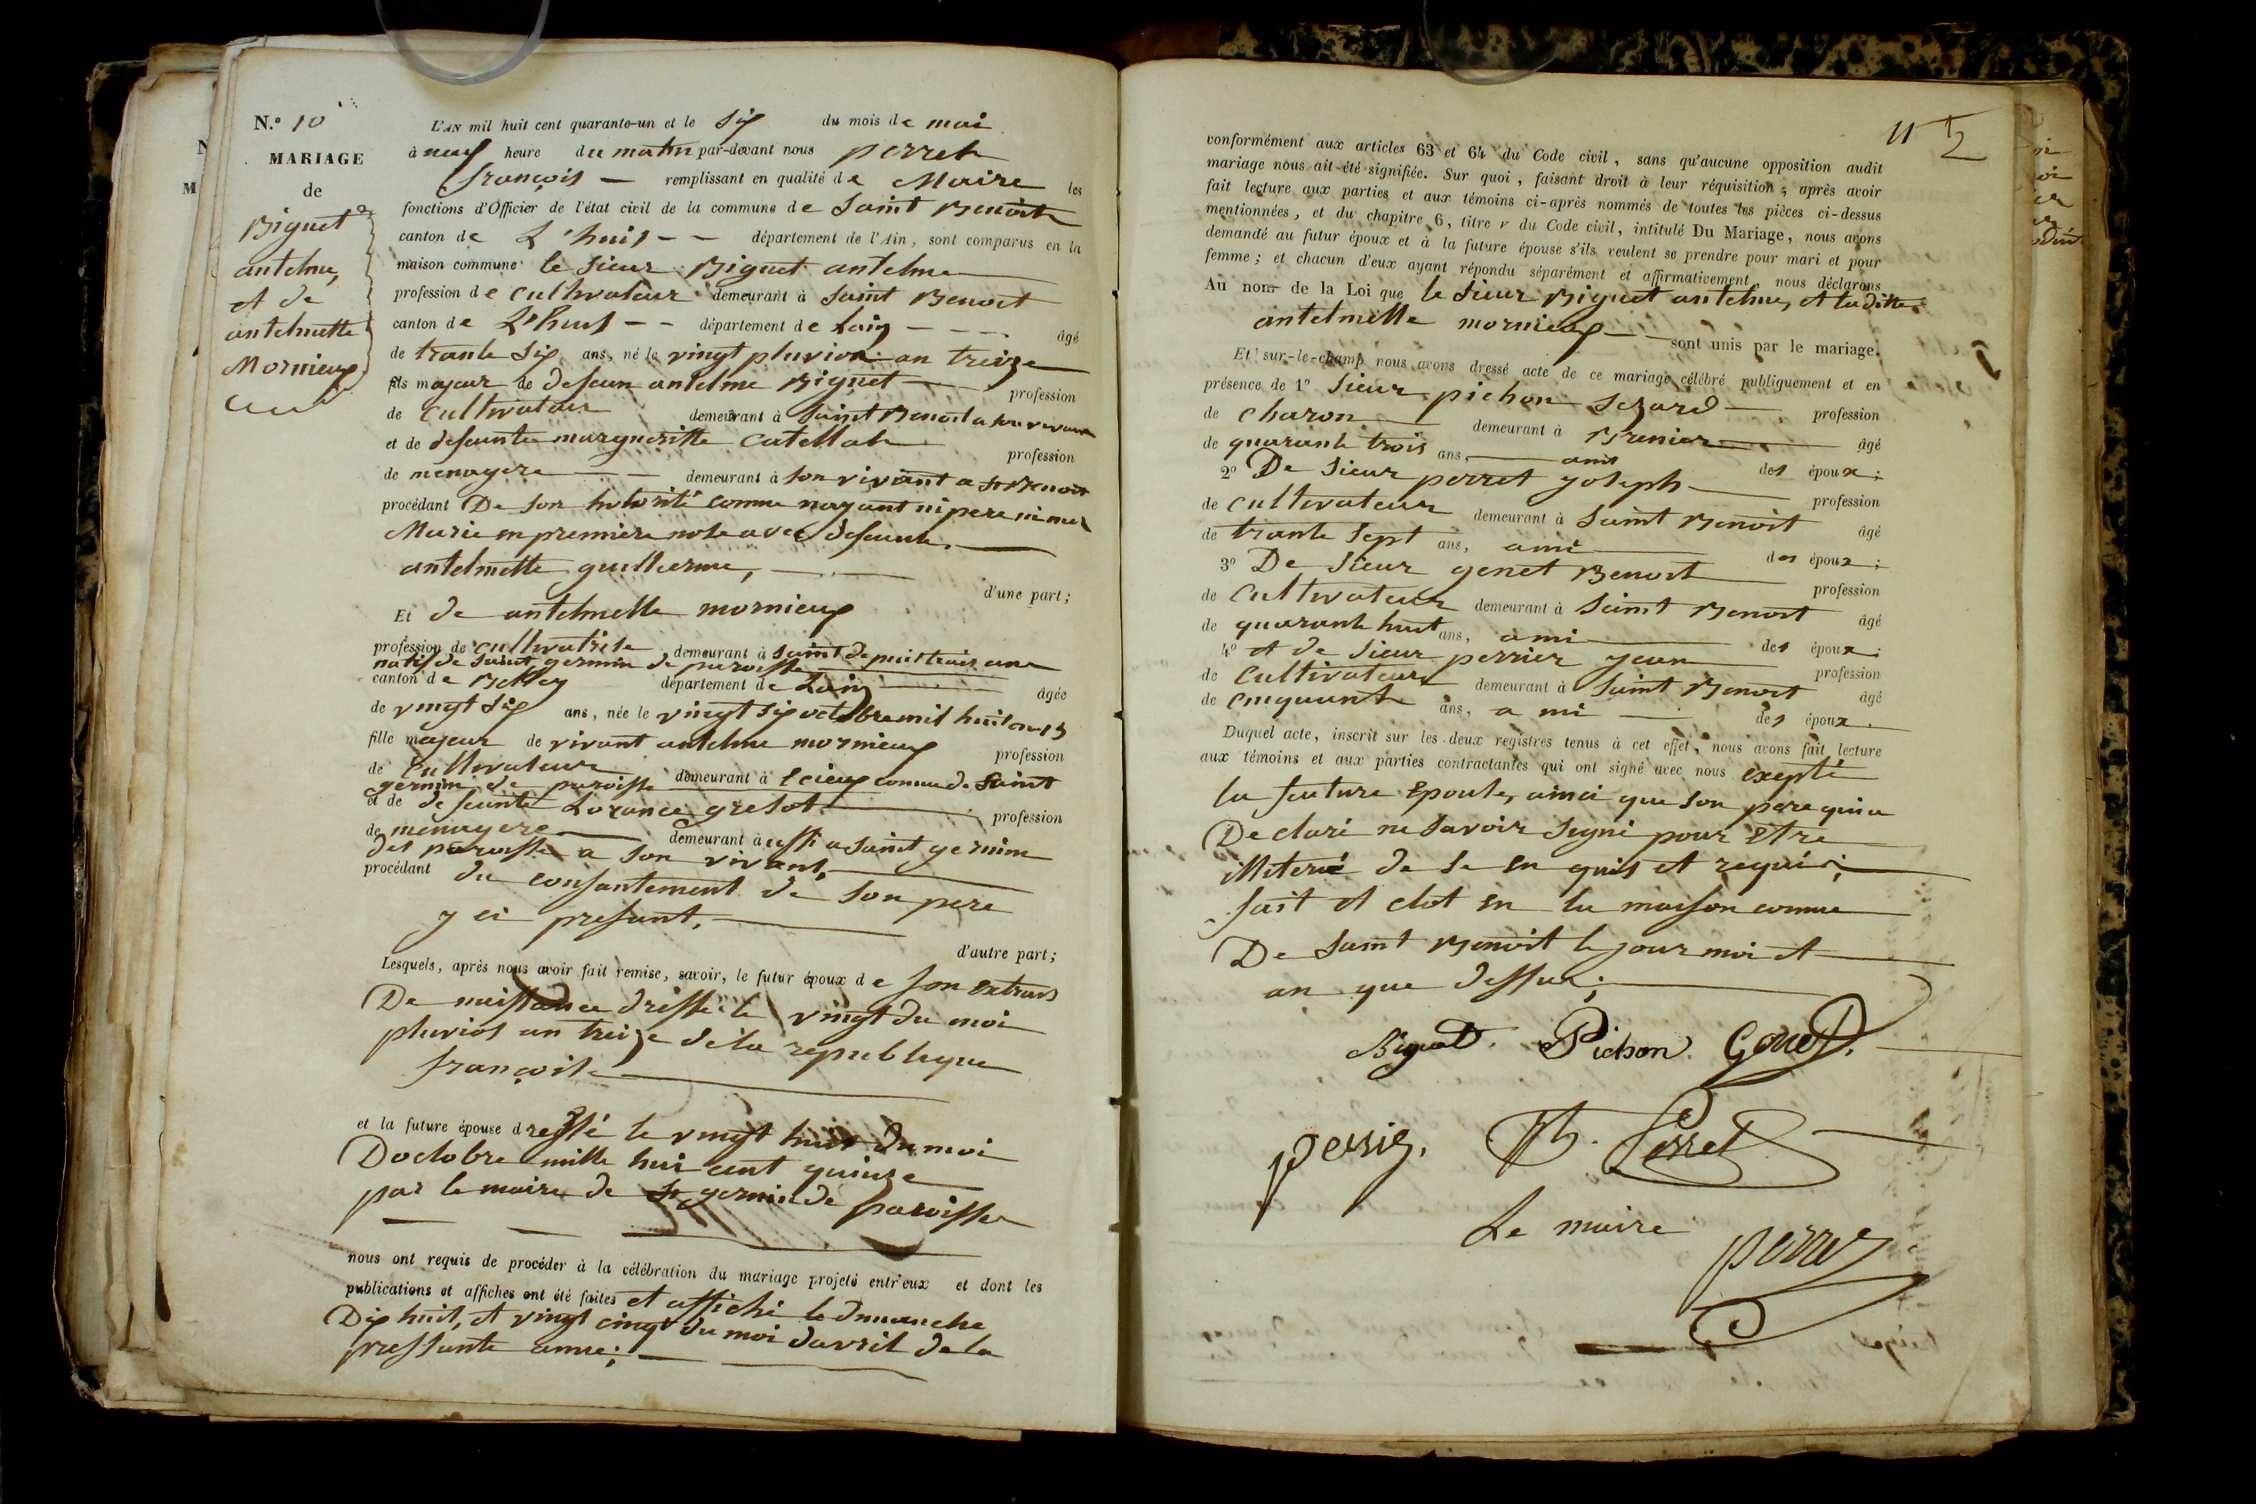 N.º 10
MARIAGE
de
Biguet
antelme,
et de
antelmette
Mornieux
L'AN mil huit cent quarante-un et le six du mois de mai
à neuf heure du matin par-devant nous perret
françois — remplissant en qualité de Maire les
fonctions d'Officier de l'état civil de la commune de Saint Benoit
canton de L'huis - - département de l'Ain, sont comparus en la
maison commune le sieur Biguet antelme
profession de cultivateur demeurant à Saint Benoit
canton de L'huis - - département de Lain - - - - âgé
de trante six ans, né le vingt pluvios an treize
fils majeur de defeun antelme Biguet — profession
de cultivateur demeurant à Saint Benoit a son vivant
et de defeunte margueritte Catellat profession
de menagere — demeurant à son vivant a St Benoit
procédant De son hutorité comme nayant ni pere ni mer
Marie en premiere nose avec defeunte
antelmette guillerme, —
d'une part;
Et de antelmette mornieux
profession de cultivatrise demeurant à saint depuis trois ans
natif de Saint germin de paroisse
canton de Belley département de Lain âgée
de vingt six ans, née le vingt six octobre mil huit cen 15
fille majeur de vivant antelme mornieux profession
de cultivateur
germin de paroisse demeurant à Ecieux comune de Saint
et de defeunte Lorance grelot profession
de menagere — demeurant à essi a saint germin
des paroisse a son vivant,
procédant du consantement de son pere
y ci presant,
d'autre part;
Lesquels, après nous avoir fait remise, savoir, le futur époux de son extrais
De naissance dressé le vingt du moi
pluvios an treize de la republeque
françoise
et la future épouse dressé le vingt huit du moi
Doctobre mille hui cent quinze
par le maire de St germin de paroisse
nous ont requis de procéder à la célébration du mariage projeté entr'eux et dont les
publications et affiches ont été faites et affiché le dimanche
Dix huit, et vingt cinq du moi davril de la
pressante anne;
11 1/2
conformément aux articles 63 et 64 du Code civil, sans qu'aucune opposition audit
mariage nous ait été signifiée. Sur quoi, faisant droit à leur réquisition, après avoir
fait lecture aux parties et aux témoins ci-après nommés de toutes les pièces ci-dessus
mentionnées, et du chapitre 6, titre v du Code civil, intitulé Du Mariage, nous avons
demandé au futur époux et à la future épouse s'ils veulent se prendre pour mari et pour
femme; et chacun d'eux ayant répondu séparément et affirmativement, nous déclarons
Au nom de la Loi que le Sieur Biguet antelme, et laditte
antelmette mornieux — sont unis par le mariage.
Et sur-le-champ nous avons dressé acte de ce mariage célébré publiquement et en
présence de 1º sieur pichon Sezard — profession
de charon demeurant à Brenier âgé
de quarante trois ans, — ami des époux;
2º De sieur perret Joseph — profession
de cultivateur demeurant à Saint Benoit âgé
de trante sept ans, ami — des époux;
3º De sieur genet Benoit profession
de Cultivateur demeurant à Saint Benoit âgé
de quarante huit ans, ami — des époux;
4º et de sieur perrier Jean profession
de Cultivateur demeurant à Saint Benoit âgé
de cinquante ans, ami — des époux.
Duquel acte, inscrit sur les deux registres tenus à cet effet, nous avons fait lecture
aux témoins et aux parties contractantes qui ont signé avec nous exepté
la feuture Epouse, ainci que son pere qui a
Declaré ne savoir signi pour Etre
illiteré de se en quis et requis;
fait et clot en la maison comue
De Saint Benoit le jour moi et
an que dessus;
Biguet. Pichon. Genet.
perrier. Jh. Perret
Le maire perret